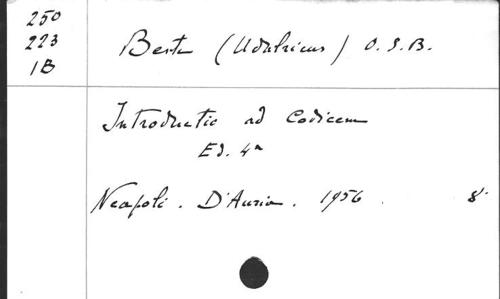 250
223
1B
Beste (Udalricus) O.S.B.
Introductio ad Codicem
Ed. 4a
Neapoli. D'Auria. 1956. 8°